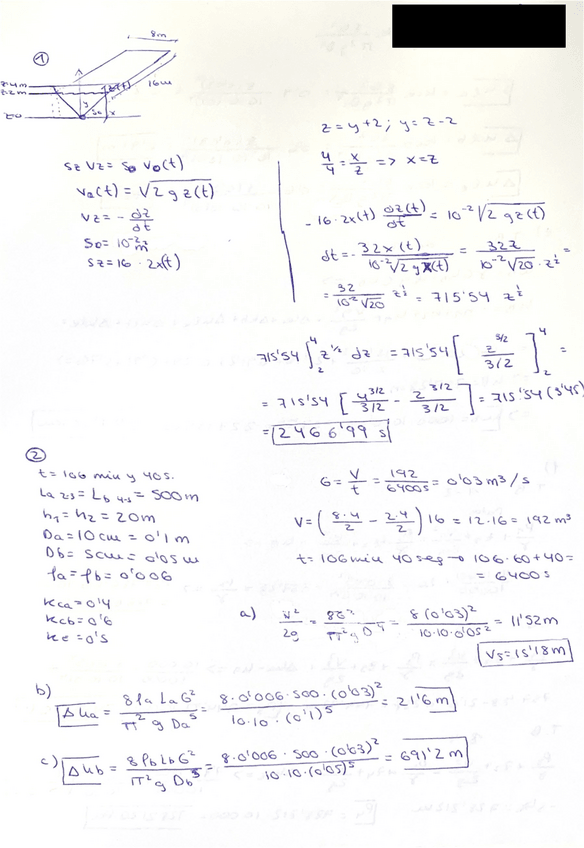 ①
8m
16m
z=4m
z=2m
z=0
z(t)
y
So
x
z = y+2 ; y = z-2
y/4 = x/z => x=z
Sz Vz = So Vo(t)
Va(t) = √2 g z(t)
Vz = - dz/dt
So = 10⁻² m
Sz = 16 · 2x(t)
- 16·2x(t) dz(t)/dt = 10⁻² √2 g z(t)
dt = - 32 x(t)/10⁻²√2 g x(t) = 32z/10⁻²√20 · z^½ =
= 32/10⁻²√20 z^½ = 715'54 z^½
715'54 ∫₂⁴ z^1/2 dz = 715'54 [ z^3/2 / 3/2 ]₂⁴ =
= 715'54 [ 4^3/2 / 3/2 - 2^3/2 / 3/2 ] = 715'54 (3'45)
= 2466'99 s
②
t = 106 min y 40s.
La 2-3 = Lb 4-5 = 500m
h₁ = h₂ = 20m
Da = 10cm = 0'1m
Db = 5cm = 0'05m
fa = fb = 0'006
Kca = 0'4
Kcb = 0'6
Ke = 0'5
G = V/t = 192/6400s = 0'03 m³/s
V = ( 8·4/2 - 2·4/2 ) 16 = 12·16 = 192 m³
t = 106min 40seg → 106·60+40 =
= 6400s
a) V²/2g = 8G²/π² g D⁴ = 8(0'03)²/10·10·0'05² = 11'52m
V5 = 15'18m
b) ΔHa = 8 fa La G²/π² g Da⁵ = 8·0'006·500·(0'03)²/10·10·(0'1)⁵ = 21'6m
c) ΔHb = 8 fb Lb G²/π² g Db⁵ = 8·0'006·500·(0'03)²/10·10(0'05)⁵ = 691'2 m